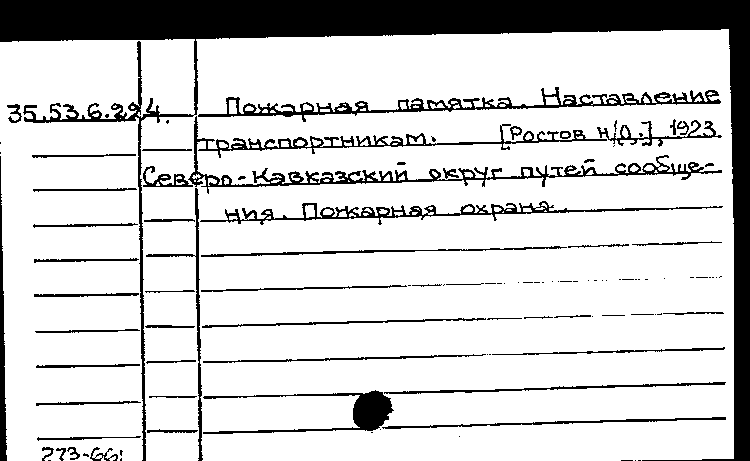 35.53.6.224. Пожарная памятка. Наставление
транспортникам. [Ростов н/Д.], 1923
Северо-Кавказский округ путей сообще-
ния. Пожарная охрана.
273-66: